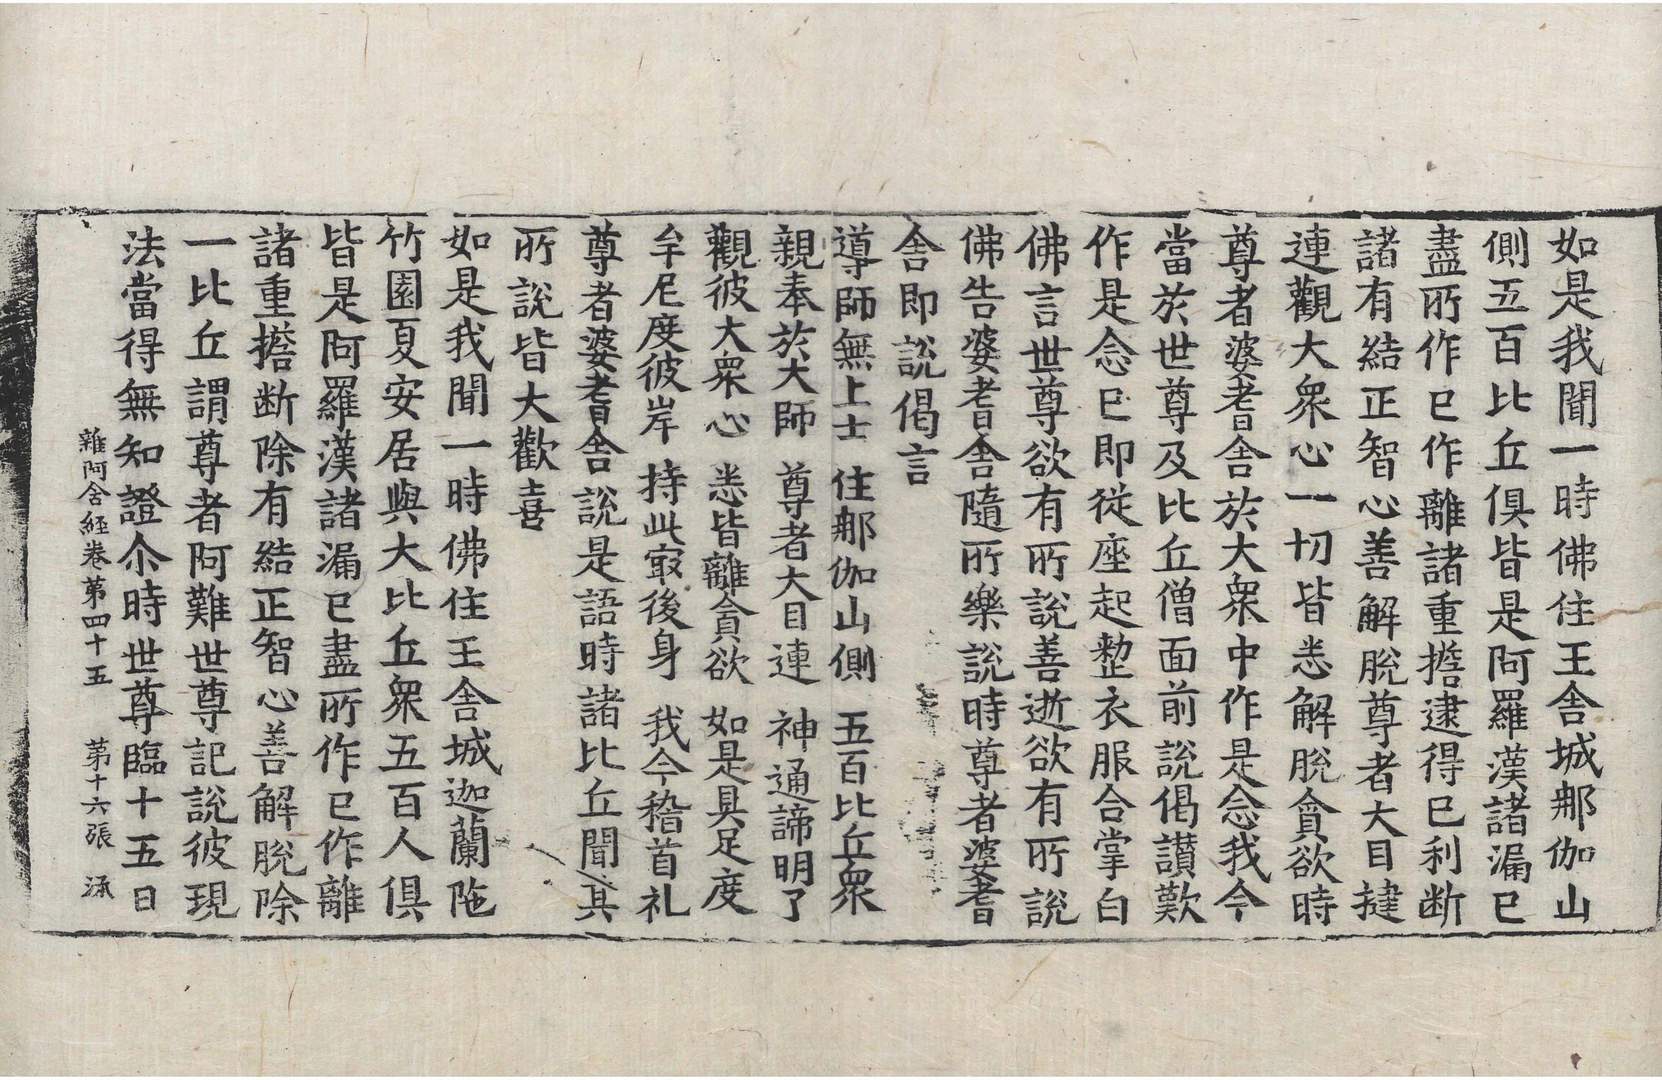 如是我聞一時佛住王舍城那伽山
側五百比丘俱皆是阿羅漢諸漏已
盡所作已作離諸重擔逮得己利断
諸有結正智心善解脫尊者大目揵
連觀大衆心一切皆悉解脫貪欲時
尊者婆耆舍於大衆中作是念我今
當於世尊及比丘僧面前說偈讃歎
作是念已即從座起整衣服合掌白
佛言世尊欲有所說善逝欲有所說
佛告婆耆舍隨所樂說時尊者婆耆
舍即說偈言
導師無上士 住那伽山側 五百比丘衆
親奉於大師 尊者大目連 神通諦明了
觀彼大衆心 悉皆離貪欲 如是具足度
牟尼度彼岸 持此㝡後身 我今稽首礼
尊者婆耆舍說是語時諸比丘聞其
所說皆大歡喜
如是我聞一時佛住王舍城迦蘭陁
竹園夏安居與大比丘衆五百人俱
皆是阿羅漢諸漏已盡所作已作離
諸重擔断除有結正智心善解脫除
一比丘謂尊者阿難世尊記說彼現
法當得無知證尒時世尊臨十五日
雜阿含經卷第四十五 第十六張 㴍